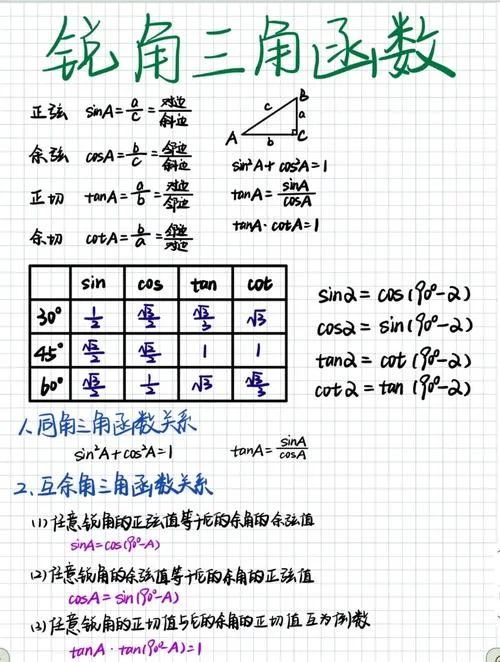 锐角三角函数
正弦 sinA=a/c=对边/斜边
余弦 cosA=b/c=邻边/斜边
正切 tanA=a/b=对边/邻边
余切 cotA=b/a=邻边/对边
B
c a
A b C
sin²A+cos²A=1
tanA=sinA/cosA
tanA·cotA=1
sin cos tan cot
30° 1/2 √3/2 √3/3 √3
45° √2/2 √2/2 1 1
60° √3/2 1/2 √3 √3/3
sin2=cos(90°-2)
cos2=sin(90°-2)
tan2=cot(90°-2)
cot2=tan(90°-2)
1.同角三角函数关系
sin²A+cos²A=1 tanA=sinA/cosA
2.互余角三角函数关系
(1)任意锐角的正弦值等于它的余角的余弦值
sinA=cos(90°-A)
(2)任意锐角的余弦值等于它的余角的正弦值
cosA=sin(90°-A)
(3)任意锐角的正切值与它的余角的正切值互为倒数
tanA·tan(90°-A)=1